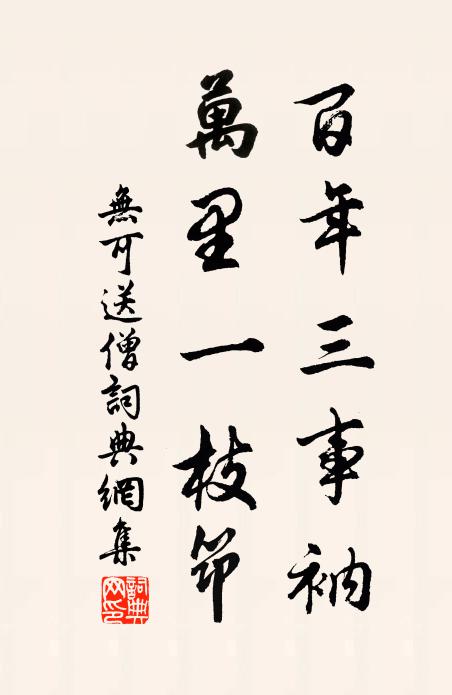 百年三事衲
萬里一枝筇
無可送僧詞典網集
詞典
网印